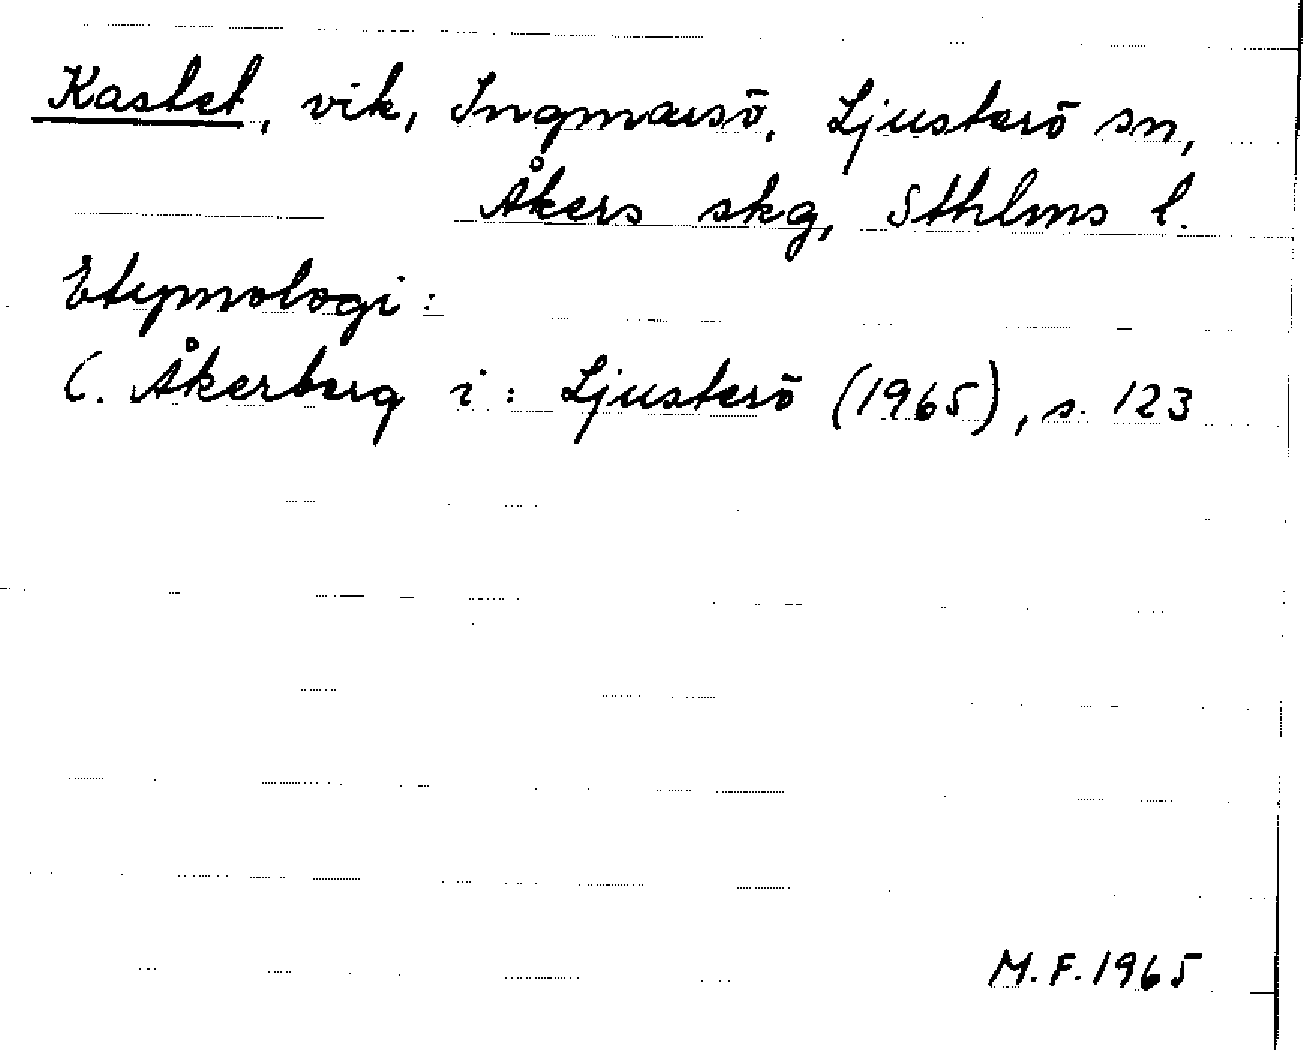 Kastet, vik, Ingmarsö, Ljusterö sn,
Åkers skg, Sthlms l.
Etymologi:
C. Åkerberg i: Ljusterö (1965), s. 123
M.F. 1965